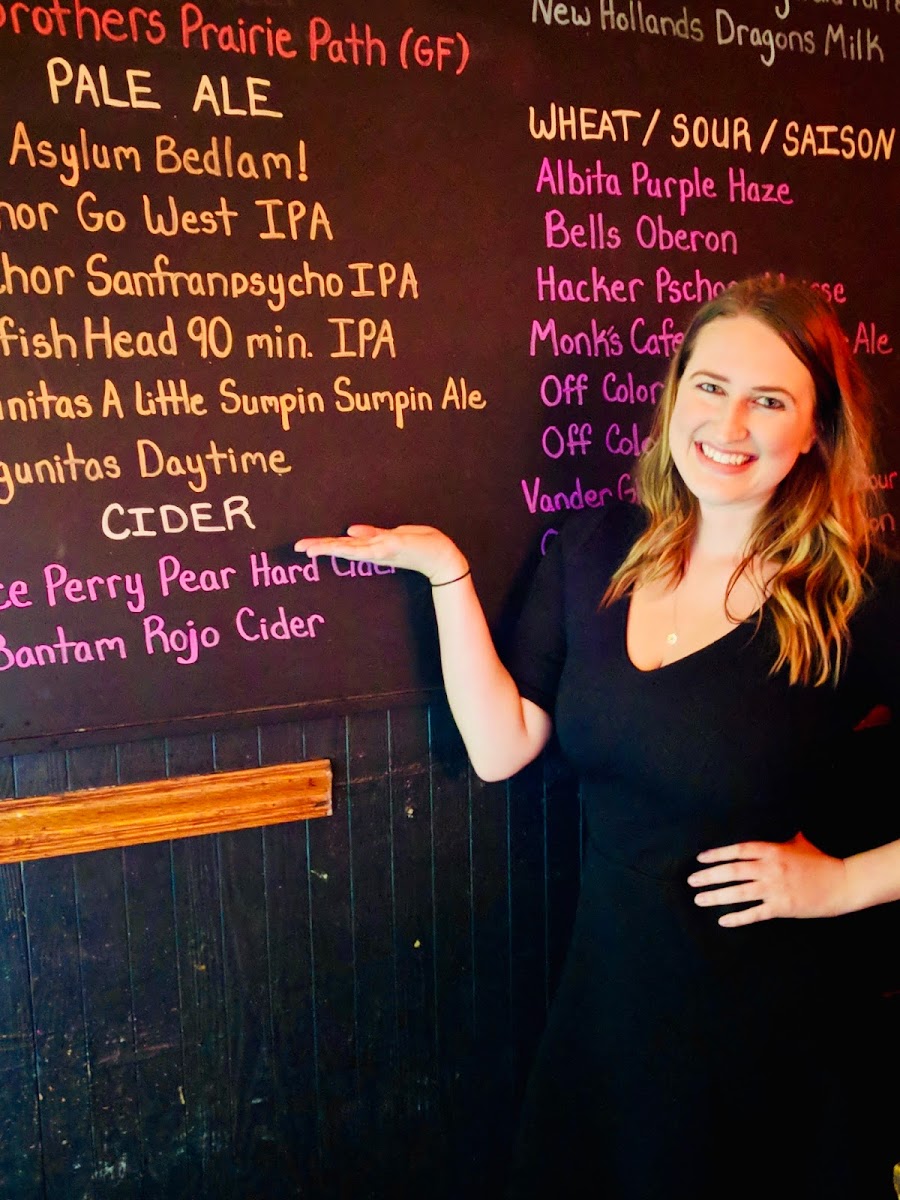 Brothers Prairie Path (GF)
PALE ALE
Asylum Bedlam!
hor Go West IPA
chor Sanfranpsycho IPA
fish Head 90 min. IPA
unitas A Little Sumpin Sumpin Ale
gunitas Daytime
CIDER
ce Perry Pear Hard Cider
Bantam Rojo Cider
New Hollands Dragons Milk
WHEAT / SOUR / SAISON
Albita Purple Haze
Bells Oberon
Hacker Pscho sse
Monk's Cafe Ale
Off Color
Off Colo
Vander G our
on